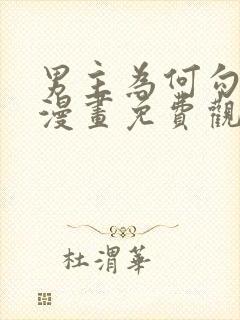 男主為何勾
漫畫免費觀
杜渭華